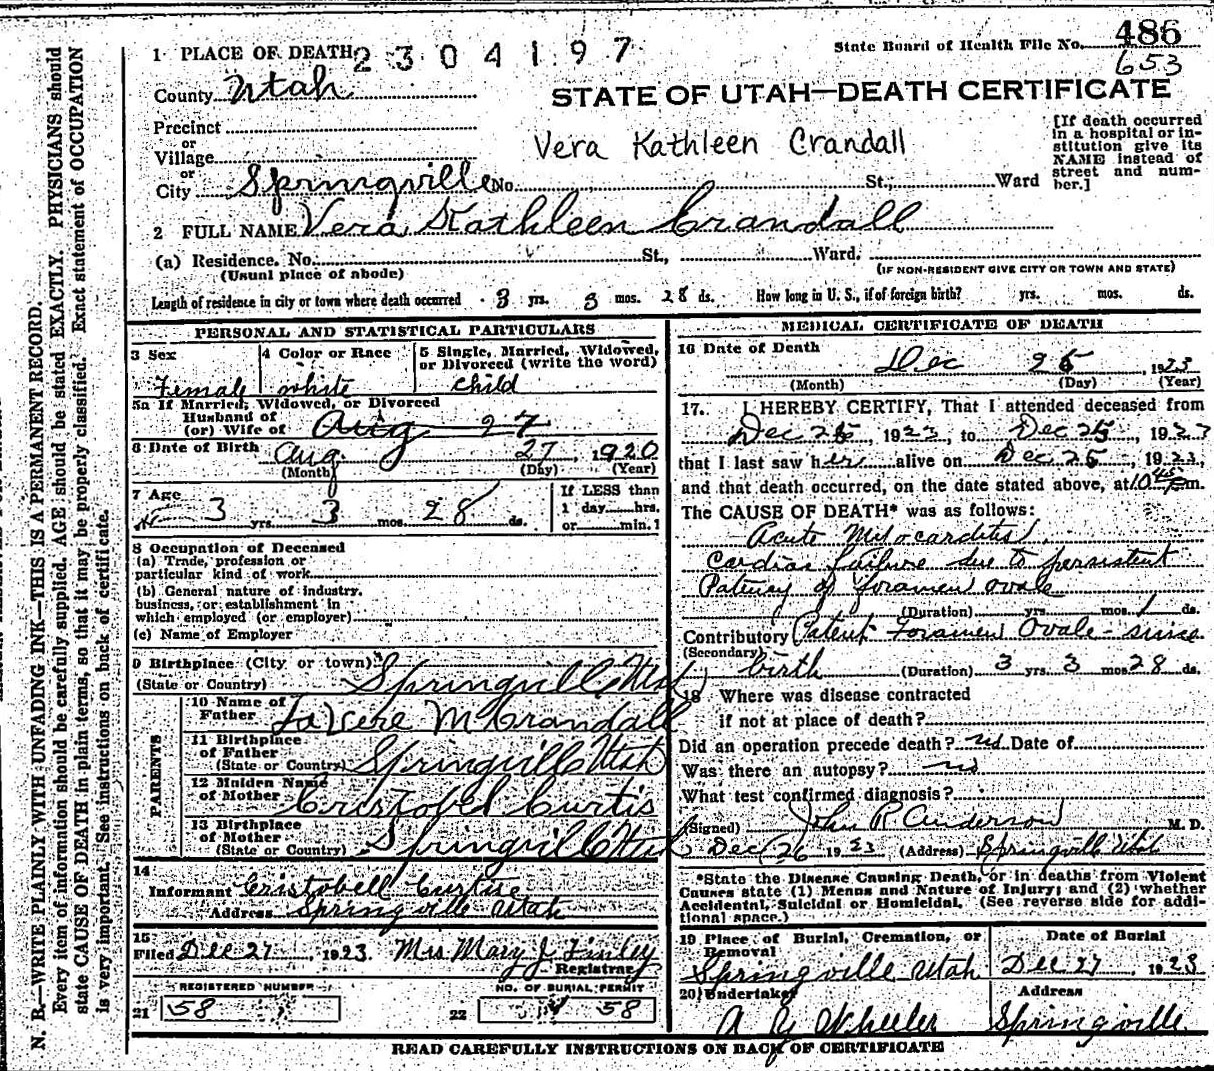 486
State Board of Health File No.
653
1 PLACE OF DEATH 2304197
County Utah
STATE OF UTAH—DEATH CERTIFICATE
Precinct
or
Village
or
City Springville No. St.; Ward
Vera Kathleen Crandall
[If death occurred
in a hospital or in-
stitution give its
NAME instead of
street and num-
ber.]
2 FULL NAME Vera Kathleen Crandall
(a) Residence. No. St., Ward.
(Usual place of abode) (IF NON-RESIDENT GIVE CITY OR TOWN AND STATE)
Length of residence in city or town where death occurred 3 yrs. 3 mos. 28 ds. How long in U. S., if of foreign birth? yrs. mos. ds.
PERSONAL AND STATISTICAL PARTICULARS
3 Sex Female
4 Color or Race white
5 Single, Married, Widowed,
or Divorced (write the word)
child
5a If Married, Widowed, or Divorced
Husband of
(or) Wife of Aug 27
6 Date of Birth Aug. 27, 1920
(Month) (Day) (Year)
7 Age 3 yrs. 3 mos. 28 ds.
If LESS than
1 day hrs.
or min. 1
8 Occupation of Deceased
(a) Trade, profession or
particular kind of work
(b) General nature of industry.
business, or establishment in
which employed (or employer)
(c) Name of Employer
9 Birthplace (City or town)
(State or Country) Springville Utah
PARENTS
10 Name of
Father LaVere M Crandall
11 Birthplace
of Father
(State or Country) Springville Utah
12 Maiden Name
of Mother Cristobel Curtis
13 Birthplace
of Mother
(State or Country) Springville Utah
14
Informant Cristobell Curtise
Address Springville Utah
15
Filed Dec 27, 1923. Mrs Mary J. Finley
Registrar
REGISTERED NUMBER
21 58
NO. OF BURIAL PERMIT
22 58
MEDICAL CERTIFICATE OF DEATH
16 Date of Death
Dec 25, 1923
(Month) (Day) (Year)
17. I HEREBY CERTIFY, That I attended deceased from
Dec 25, 1923, to Dec 25, 1923
that I last saw her alive on Dec 25, 1923,
and that death occurred, on the date stated above, at 10 45 p.m.
The CAUSE OF DEATH* was as follows:
Acute Myocarditis.
Cardiac failure due to persistent
Patency of foramen ovale
(Duration) yrs. mos. 1 ds.
Contributory Patent Foramen Ovale - since
(Secondary)
birth (Duration) 3 yrs. 3 mos. 28 ds.
18 Where was disease contracted
if not at place of death?
Did an operation precede death? no Date of
Was there an autopsy? no
What test confirmed diagnosis?
(Signed) John R Anderson M. D.
Dec 26 1923 (Address) Springville Utah
*State the Disease Causing Death, or in deaths from Violent
Causes state (1) Means and Nature of Injury; and (2) whether
Accidental, Suicidal or Homicidal. (See reverse side for addi-
tional space.)
19 Place of Burial, Cremation, or
Removal
Springville Utah
Date of Burial
Dec 27, 1923
20 Undertaker
A Y Wheeler
Address
Springville
READ CAREFULLY INSTRUCTIONS ON BACK OF CERTIFICATE
N. B.—WRITE PLAINLY WITH UNFADING INK—THIS IS A PERMANENT RECORD.
Every item of information should be carefully supplied. AGE should be stated EXACTLY. PHYSICIANS should
state CAUSE OF DEATH in plain terms, so that it may be properly classified. Exact statement of OCCUPATION
is very important. See instructions on back of certificate.